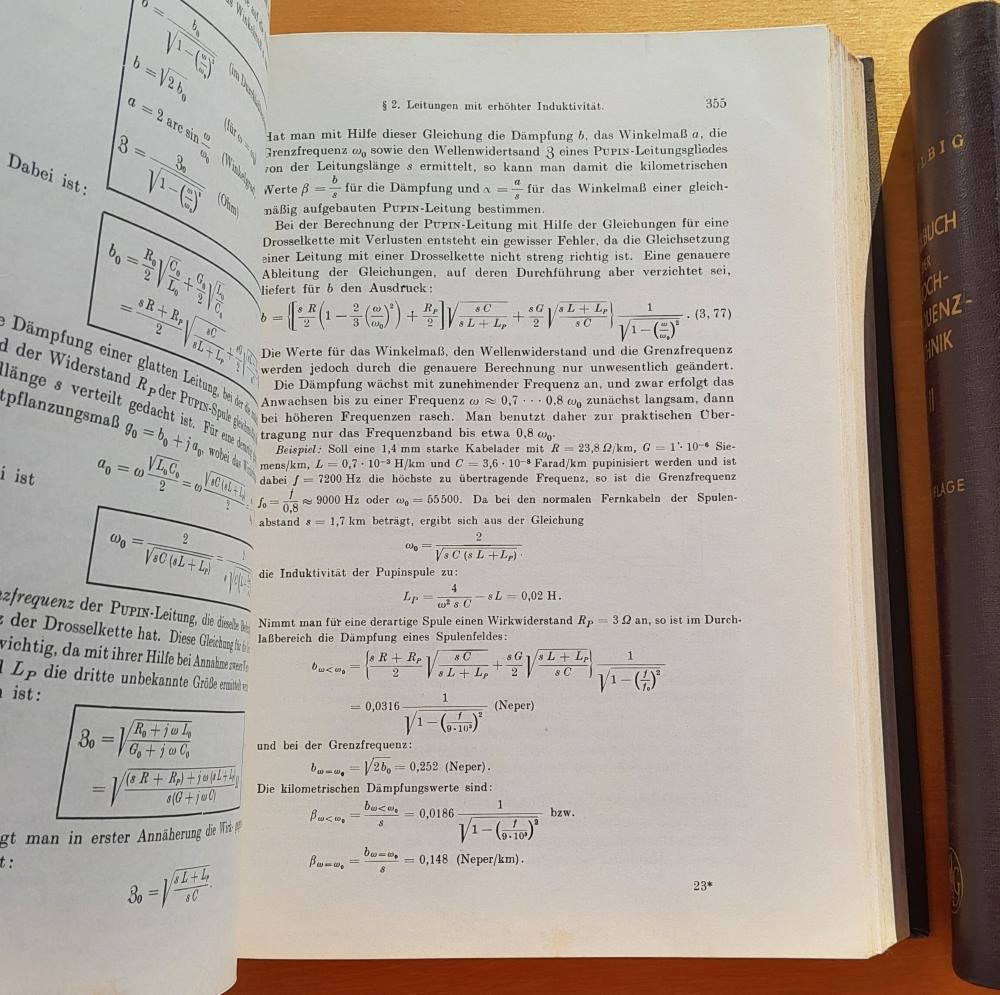 b = b₀ / √(1 − (ω/ω₀)²)
b = √(2 b₀)
a = 2 arc sin ω/ω₀
ℨ = ℨ₀ / √(1 − (ω/ω₀)²) (Ohm)
Dabei ist:
b₀ = R₀/2 √(C₀/L₀) + G₀/2 √(L₀/C₀)
= (s R + R_P)/2 √(sC/(sL + L_P))
Dämpfung einer glatten Leitung, bei der die
der Widerstand R_P der PUPIN-Spule
länge s verteilt gedacht ist. Für eine
g₀ = b₀ + j a₀, wobei das
ist
a₀ = ω √(L₀C₀)/2 = ω
ω₀ = 2/√(sC (sL + L_P)) =
der PUPIN-Leitung, die dieselbe
der Drosselkette hat. Diese Gleichung für die
wichtig, da mit ihrer Hilfe bei Annahme zweier
L_P die dritte unbekannte Größe ermittelt
ist:
ℨ₀ = √((R₀ + j ω L₀)/(G₀ + j ω C₀))
= √(((s R + R_P) + j ω (s L + L_P))/(s(G + j ω C)))
man in erster Annäherung die
ℨ₀ = √((s L + L_P)/(s C)).
§ 2. Leitungen mit erhöhter Induktivität. 355
Hat man mit Hilfe dieser Gleichung die Dämpfung b, das Winkelmaß a, die
Grenzfrequenz ω₀ sowie den Wellenwidertsand ℨ eines PUPIN-Leitungsgliedes
von der Leitungslänge s ermittelt, so kann man damit die kilometrischen
Werte β = b/s für die Dämpfung und α = a/s für das Winkelmaß einer gleich-
mäßig aufgebauten PUPIN-Leitung bestimmen.
Bei der Berechnung der PUPIN-Leitung mit Hilfe der Gleichungen für eine
Drosselkette mit Verlusten entsteht ein gewisser Fehler, da die Gleichsetzung
einer Leitung mit einer Drosselkette nicht streng richtig ist. Eine genauere
Ableitung der Gleichungen, auf deren Durchführung aber verzichtet sei,
liefert für b den Ausdruck:
b = {[s R/2 (1 − 2/3 (ω/ω₀)²) + R_P/2] √(s C/(s L + L_P)) + s G/2 √((s L + L_P)/(s C))} 1/√(1 − (ω/ω₀)²) . (3, 77)
Die Werte für das Winkelmaß, den Wellenwiderstand und die Grenzfrequenz
werden jedoch durch die genauere Berechnung nur unwesentlich geändert.
Die Dämpfung wächst mit zunehmender Frequenz an, und zwar erfolgt das
Anwachsen bis zu einer Frequenz ω ≈ 0,7 · · · 0,8 ω₀ zunächst langsam, dann
bei höheren Frequenzen rasch. Man benutzt daher zur praktischen Über-
tragung nur das Frequenzband bis etwa 0,8 ω₀.
Beispiel: Soll eine 1,4 mm starke Kabelader mit R = 23,8 Ω/km, G = 1 · 10⁻⁶ Sie-
mens/km, L = 0,7 · 10⁻³ H/km und C = 3,6 · 10⁻⁸ Farad/km pupinisiert werden und ist
dabei f = 7200 Hz die höchste zu übertragende Frequenz, so ist die Grenzfrequenz
f₀ = f/0,8 ≈ 9000 Hz oder ω₀ = 55500. Da bei den normalen Fernkabeln der Spulen-
abstand s = 1,7 km beträgt, ergibt sich aus der Gleichung
ω₀ = 2/√(s C (s L + L_P)).
die Induktivität der Pupinspule zu:
L_P = 4/(ω² s C) − sL = 0,02 H.
Nimmt man für eine derartige Spule einen Wirkwiderstand R_P = 3 Ω an, so ist im Durch-
laßbereich die Dämpfung eines Spulenfeldes:
b_ω<ω₀ = {(s R + R_P)/2 √(s C/(s L + L_P)) + s G/2 √((s L + L_P)/(s C))} 1/√(1 − (f/f₀)²)
= 0,0316 1/√(1 − (f/(9·10³))²) (Neper)
und bei der Grenzfrequenz:
b_ω=ω₀ = √(2b₀) = 0,252 (Neper).
Die kilometrischen Dämpfungswerte sind:
β_ω<ω₀ = b_ω<ω₀/s = 0,0186 1/√(1 − (f/(9·10³))²) bzw.
β_ω=ω₀ = b_ω=ω₀/s = 0,148 (Neper/km).
23*